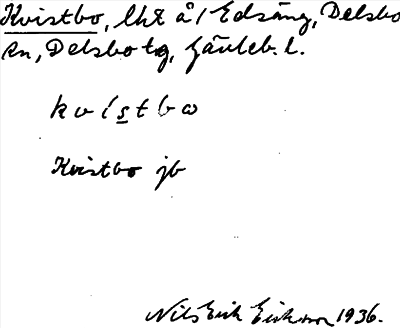 Kvistbo, lht å/Edsäng, Delsbo
sn, Delsbo tg, Gävleb. l.
kvistbω
Kvistbo jb
Nils Erik Eriksson 1936.